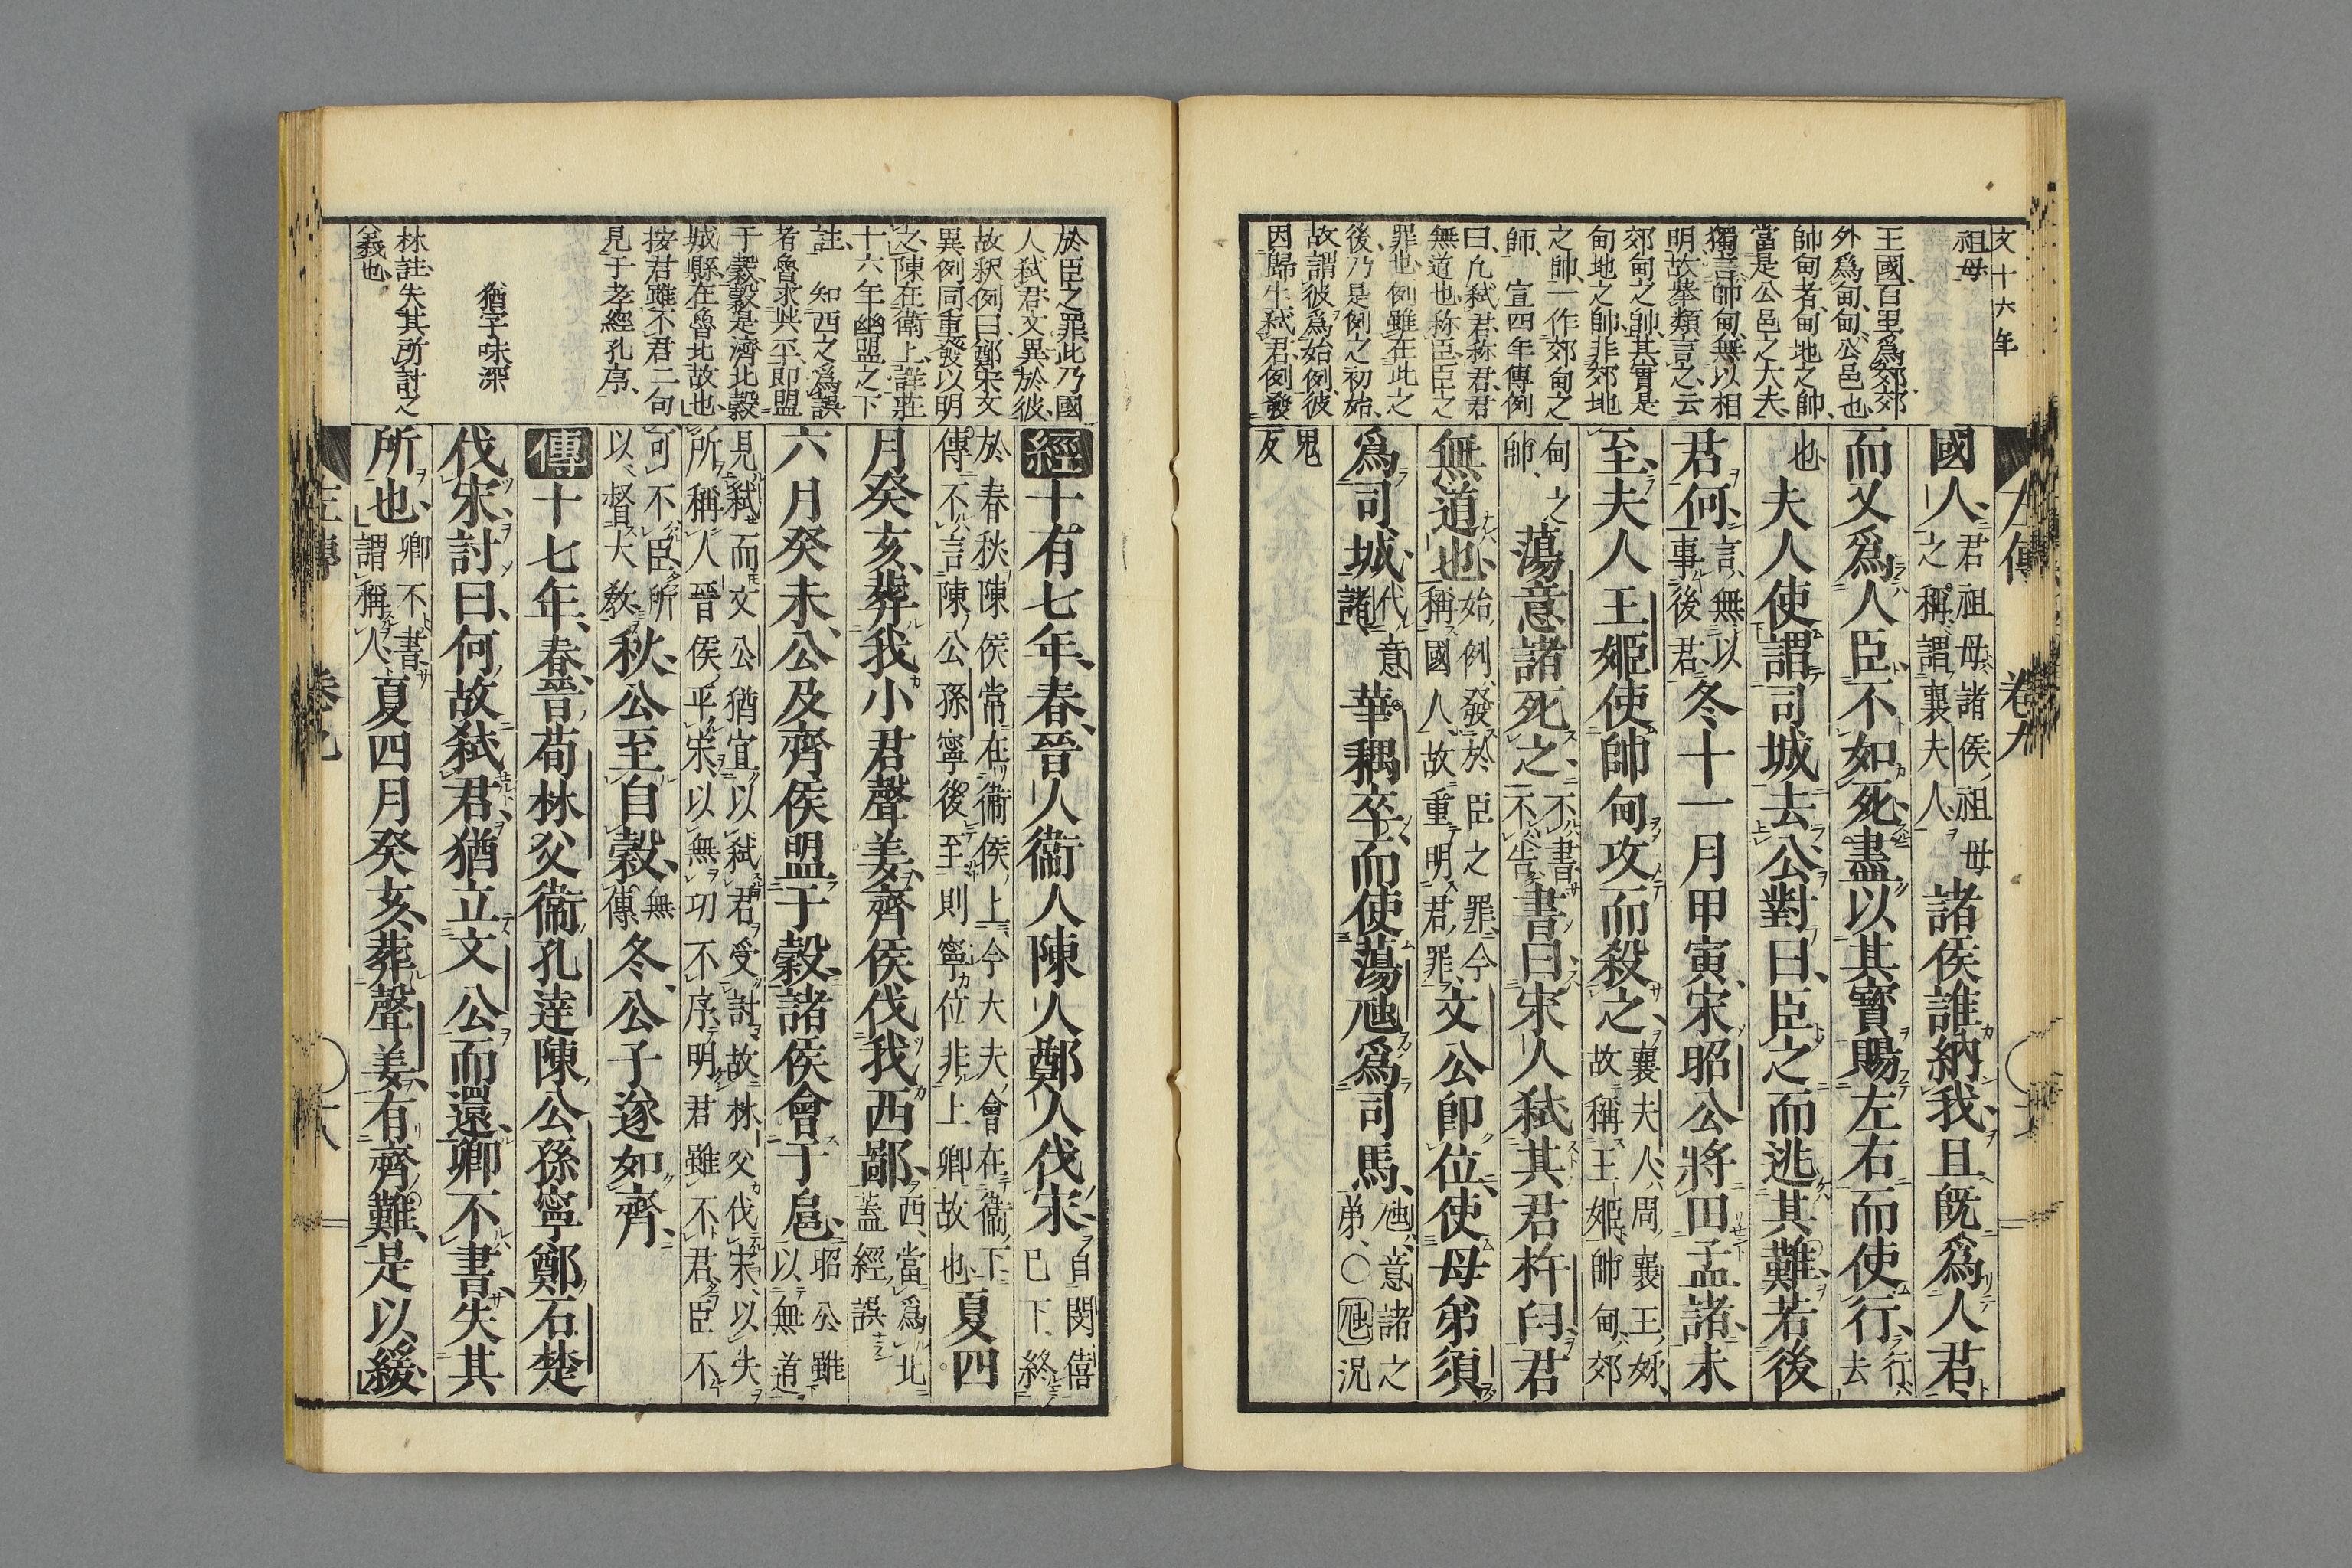 文十六年
祖母
王國百里爲郊郊
外爲甸甸公邑也
帥甸者甸地之帥
當是公邑之大夫
獨言帥甸無以相
明故擧類言之云
郊甸之帥其實是
甸地之帥非郊地
之帥一作郊甸之
師 宣四年傳例
曰凢弑君称君君
無道也称臣臣之
罪也例雖在此之
後乃是例之初始
故謂彼爲始例彼
因歸生弑君例發
左傳 卷九
國人君祖母諸侯祖母之稱謂襄夫人諸侯誰納我且既爲人君
而又爲人臣不如死盡以其寳賜左右而使行行去
也夫人使謂司城去公對曰臣之而逃其難若後
君何言無以事後君冬十一月甲寅宋昭公將田孟諸未
至夫人王姬使帥甸攻而殺之襄夫人周襄王姊故稱王姬帥甸郊
甸之帥蕩意諸死之不書不告書曰宋人弑其君杵臼君
無道也始例發於臣之罪今稱國人故重明君罪文公卽位使母弟須
爲司城代意諸華耦卒而使蕩虺爲司馬虺意諸之弟○虺況
鬼反
於臣之罪此乃國
人弑君文異於彼
故釈例曰鄭宋文
異例同重發以明
之 陳在衛上詳莊
十六年幽盟之下
註 知西之爲誤
者魯求共平即盟
于穀穀是濟北穀
城縣在魯北故也
按君雖不君二句
見于孝經孔序
猶字味深
林註失其所討之
義也
經十有七年春晉人衞人陳人鄭人伐宋自閔僖已下終
於春秋陳侯常在衞侯上今大夫會在衞下傳不言陳公孫寧後至則寧位非上卿故也夏四
月癸亥葬我小君聲姜齊侯伐我西鄙西當爲北蓋經誤
六月癸未公及齊侯盟于穀諸侯會于扈昭公雖以無道
見弑而文公猶宜以弑君受討故林父伐宋以失所稱人晉侯平宋以無功不序明君雖不君臣不
可不臣所以督大敎秋公至自穀無傳冬公子遂如齊
傳十七年春晉荀林父衞孔達陳公孫寧鄭石楚
伐宋討曰何故弑君猶立文公而還卿不書失其
所也卿不書謂稱人夏四月癸亥葬聲姜有齊難是以緩
左傳 卷九